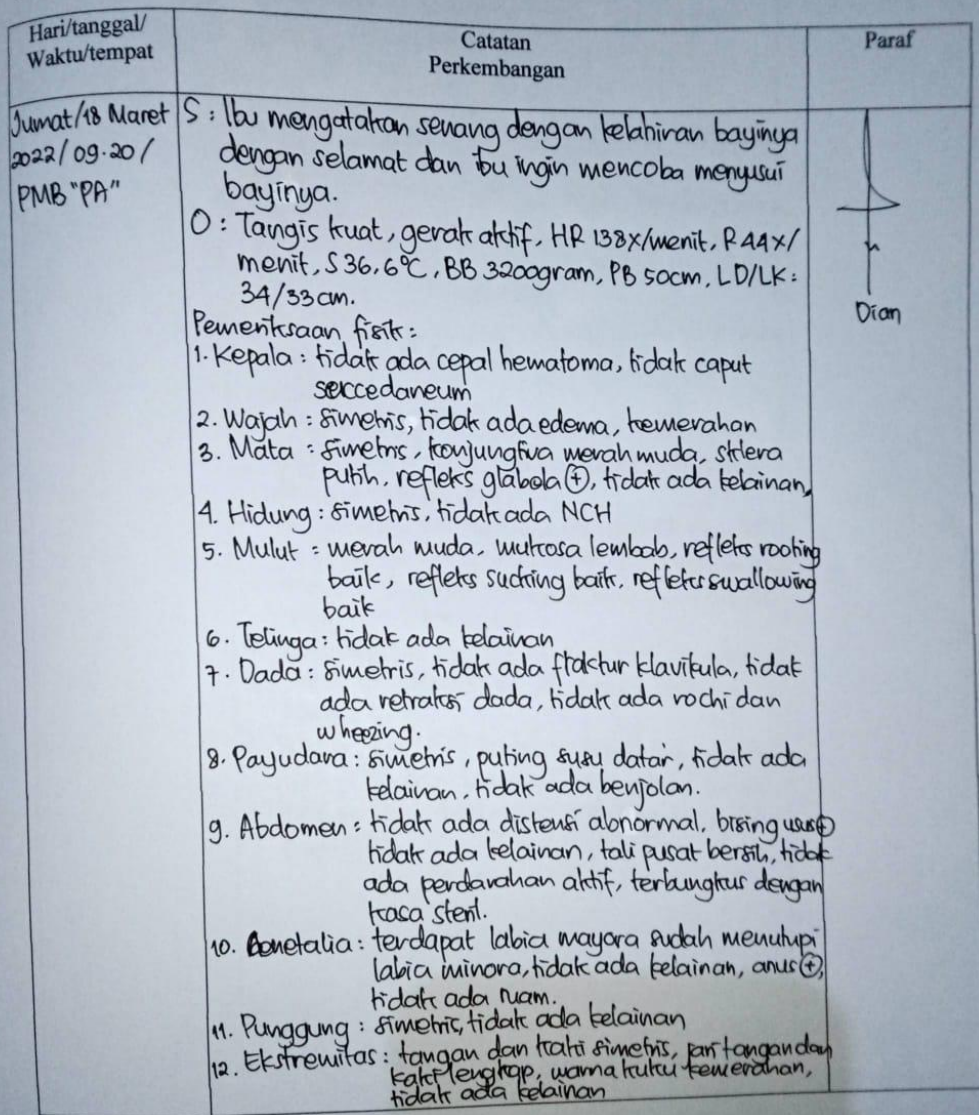 Hari/tanggal/
Waktu/tempat
Catatan
Perkembangan
Paraf
Jumat/18 Maret
2022/09.20/
PMB "PA"
S : Ibu mengatakan senang dengan kelahiran bayinya
dengan selamat dan ibu ingin mencoba menyusui
bayinya.
O : Tangis kuat, gerak aktif, HR 138x/menit, R 44x/
menit, S 36,6°C, BB 3200gram, PB 50cm, LD/LK :
34/33 cm.
Pemeriksaan fisik :
1. Kepala : tidak ada cepal hematoma, tidak caput
seccedaneum
2. Wajah : simetris, tidak ada edema, kemerahan
3. Mata : simetris, konjungtiva merah muda, sklera
putih, refleks glabola (+), tidak ada kelainan,
4. Hidung : simetris, tidak ada NCH
5. Mulut : merah muda, mukosa lembab, refleks rooting
baik, refleks sucking baik, refleks swallowing
baik
6. Telinga : tidak ada kelainan
7. Dada : simetris, tidak ada fraktur klavikula, tidak
ada retraksi dada, tidak ada rochi dan
wheezing.
8. Payudara : simetris, puting susu datar, tidak ada
kelainan, tidak ada benjolan.
9. Abdomen : tidak ada distensi abnormal, bising usus (+)
tidak ada kelainan, tali pusat bersih, tidak
ada perdarahan aktif, terbungkus dengan
kasa steril.
10. Genetalia : terdapat labia mayora sudah menutupi
labia minora, tidak ada kelainan, anus (+),
tidak ada ruam.
11. Punggung : simetris, tidak ada kelainan
12. Ekstremitas : tangan dan kaki simetris, jari tangan dan
kaki lengkap, warna kuku kemerahan,
tidak ada kelainan
Dian